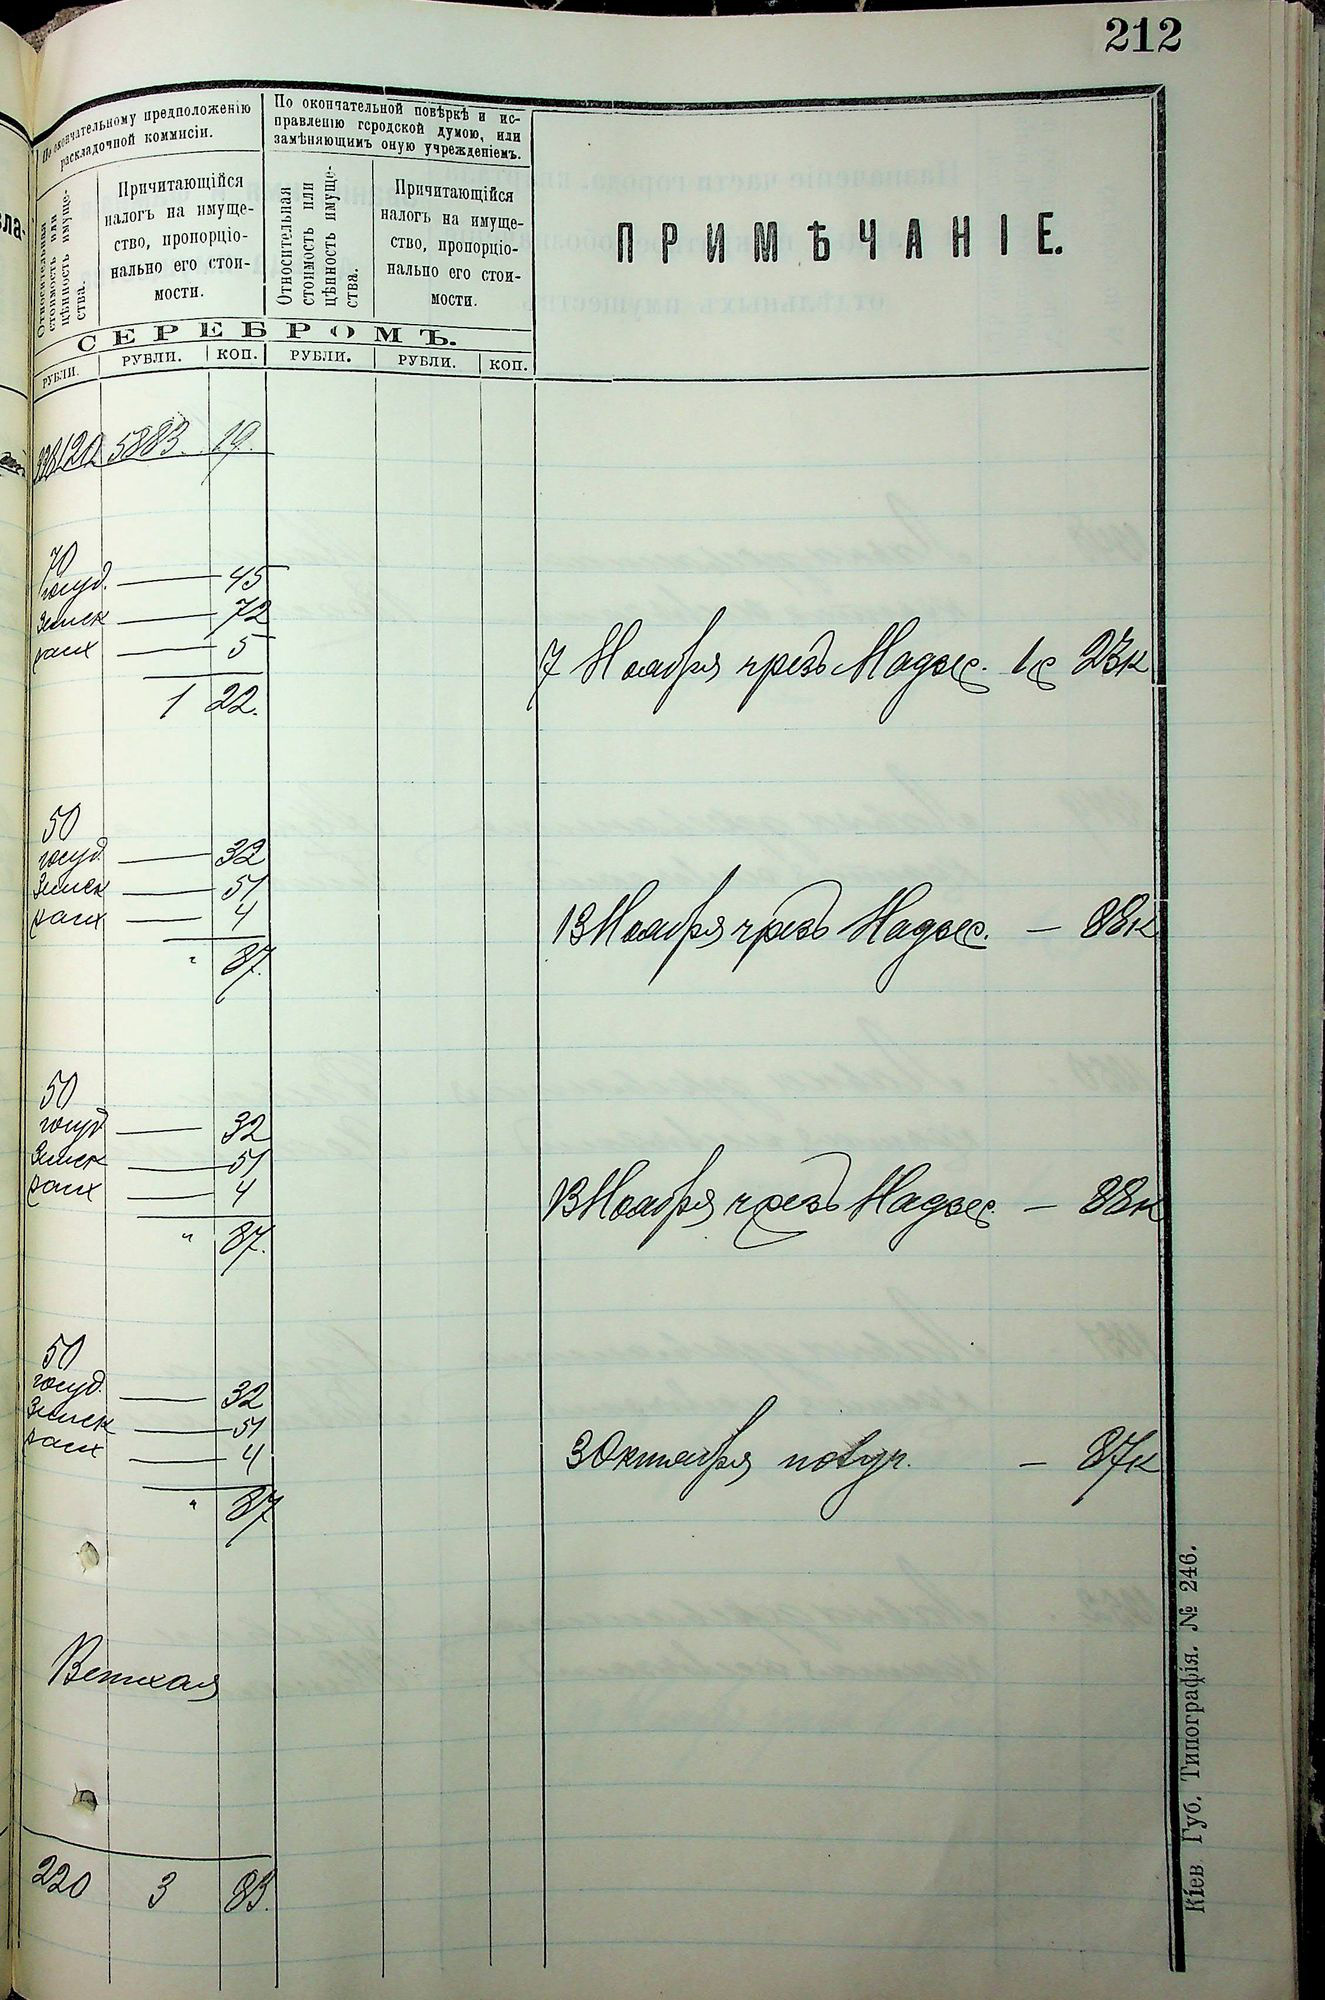 212
По окончательному предположенію
раскладочной коммисіи.
По окончательной повѣркѣ и ис-
правленію городской думою, или
замѣняющимъ оную учрежденіемъ.
Относительная
стоимость или
цѣнность имуще-
ства.
Причитающійся
налогъ на имуще-
ство, пропорціо-
нально его стои-
мости.
Относительная
стоимость или
цѣнность имуще-
ства.
Причитающійся
налогъ на имуще-
ство, пропорціо-
нально его стои-
мости.
ПРИМѢЧАНІЕ.
СЕРЕБРОМЪ.
РУБЛИ. РУБЛИ. КОП. РУБЛИ. РУБЛИ. КОП.
5883. 19.
70
госуд. — 45
Земск — 72
5
1 22.
7 Ноября чрезъ Надзес. 1 р 23к
50
госуд — 32
Земск — 51
4
" 87.
13 Ноября чрезъ Надзес. — 88к
50
госуд — 32
Земск — 51
4
" 87.
13 Ноября чрезъ Надзес. — 88к
50
госуд. — 32
Земск — 51
4
" 87
3 Октября получ. — 87к
Ветхая
220 3 83.
Кіев Губ. Типографія. № 246.